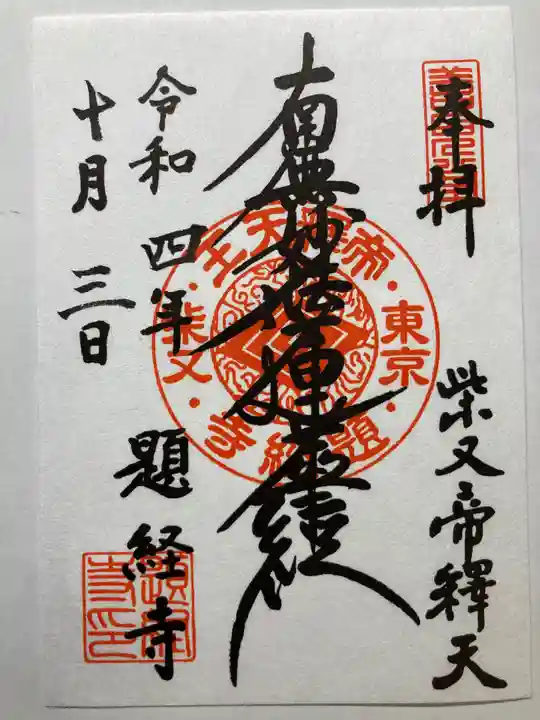 奉拝
柴又帝釋天
南無妙法蓮華経
帝釈天王
東京
柴又
題経寺
令和四年
十月三日
題経寺